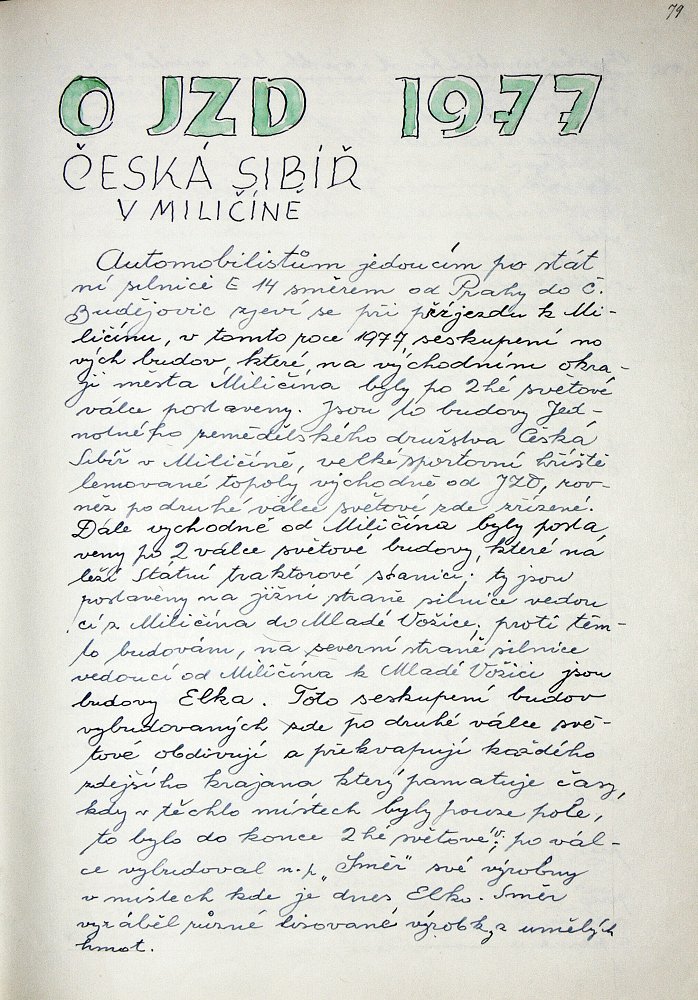 79
O JZD 1977
ČESKÁ SIBÍŘ
V MILIČÍNĚ
Automobilistům jedoucím po stát
ní silnici E 14 směrem od Prahy do Č.
Budějovic zjeví se při příjezdu k Mi-
ličínu, v tomto roce 1977, seskupení no
vých budov, které, na východním okra-
ji města Miličína byly po 2hé světové
válce postaveny. Jsou to budovy Jed-
notného zemědělského družstva Česká
Sibíř v Miličíně, velké sportovní hřiště
lemované topoly východně od JZD, rov-
něž po druhé válce světové zde zřízené.
Dále východně od Miličína byly posta
veny po 2 válce světové budovy, které ná
leží Státní traktorové stanici; ty jsou
postavěny na jižní straně silnice vedou
cí z Miličína do Mladé Vožice; proti těm-
to budovám, na severní straně silnice
vedoucí od Miličína k Mladé Vožici jsou
budovy Elka. Toto seskupení budov
vybudovaných zde po druhé válce svě-
tové obdivují a překvapují každého
zdejšího krajana který pamatuje časy,
kdy v těchto místech byly pouze pole,
to bylo do konce 2hé světové v; po vál-
ce vybudoval n.p. „Směr" své výrobny
v místech kde je dnes Elko. Směr
vyráběl různé lisované výrobky z umělých
hmot.